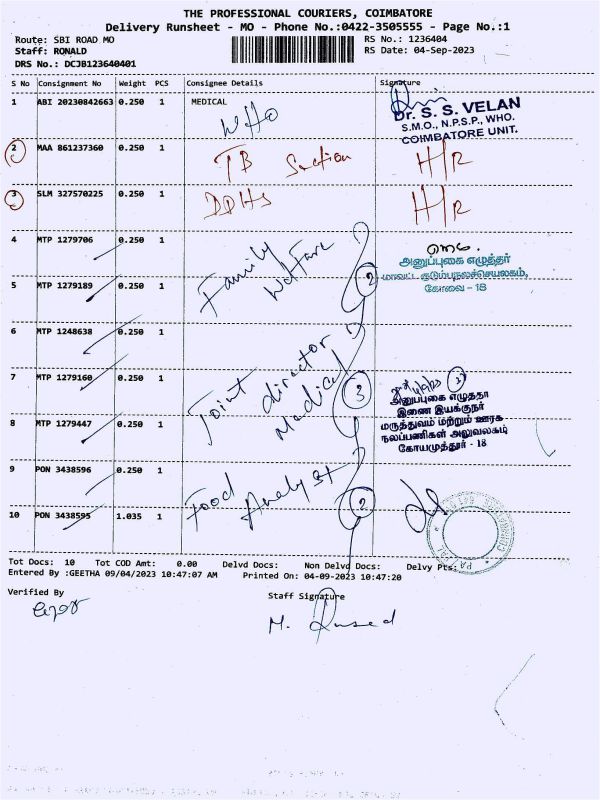 THE PROFESSIONAL COURIERS, COIMBATORE
Delivery Runsheet - MO - Phone No.:0422-3505555 - Page No.:1
Route: SBI ROAD MO
RS No.: 1236404
Staff: RONALD
RS Date: 04-Sep-2023
DRS No.: DCJB123640401
S No Consignment No Weight PCS Consignee Details Signature
1 ABI 20230842663 0.250 1 MEDICAL
WHO
Dr. S. S. VELAN
S.M.O., N.P.S.P., WHO.
COIMBATORE UNIT.
2 MAA 861237360 0.250 1 TB Section H/R
3 SLM 327570225 0.250 1 DDHS H/R
4 MTP 1279706 0.250 1 Family
Welfare
அனுப்புகை எழுத்தர்
மாவட்ட குடும்பநலச்செயலகம்,
கோவை - 18
5 MTP 1279189 0.250 1 2
6 MTP 1248638 0.250 1
Joint director
Medical
7 MTP 1279160 0.250 1 3
அனுப்புகை எழுத்தர்
இணை இயக்குநர்
மருத்துவம் மற்றும் ஊரக
நலப்பணிகள் அலுவலகம்
கோயமுத்தூர் - 18
8 MTP 1279447 0.250 1
9 PON 3438596 0.250 1 Food
Analyst 2
10 PON 3438595 1.035 1
Tot Docs: 10 Tot COD Amt: 0.00 Delvd Docs: Non Delvd Docs: Delvy Pts:
Entered By :GEETHA 09/04/2023 10:47:07 AM Printed On: 04-09-2023 10:47:20
Verified By
Staff Signature